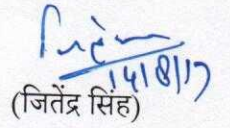 14/8/17
(जितेंद्र सिंह)